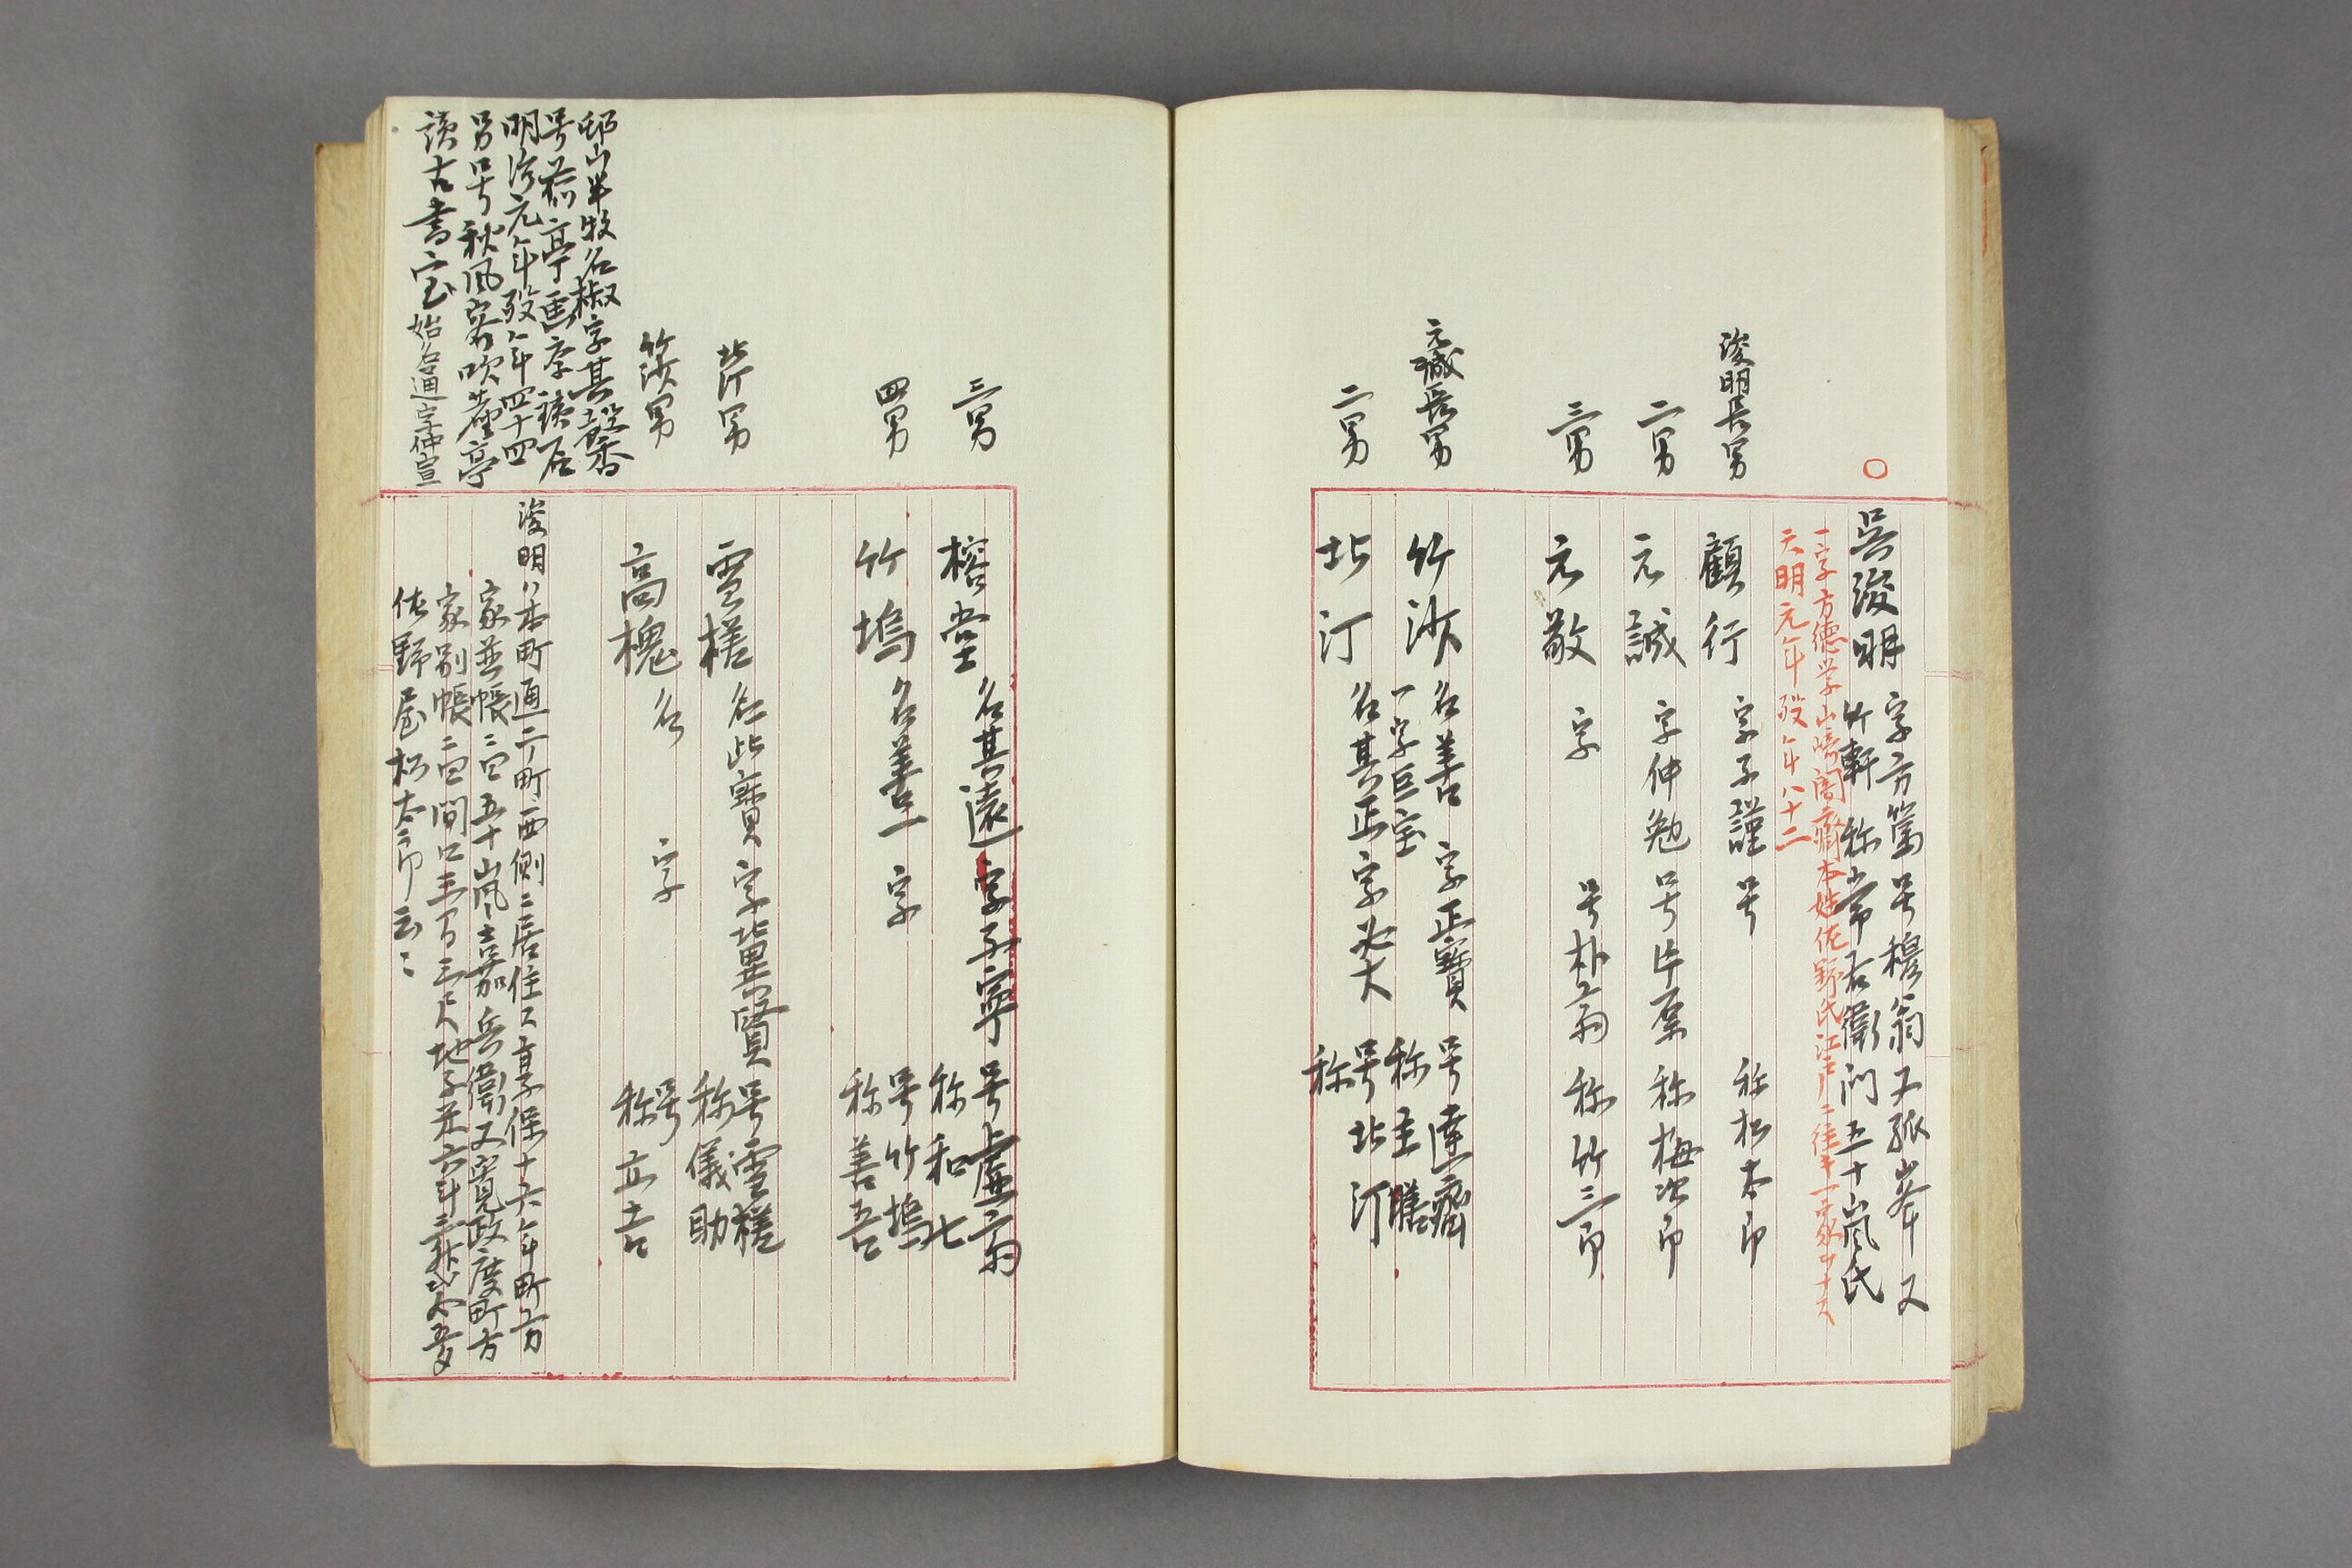 ○
呉浚明 字方篤 号穆翁 又孤峯 又
竹軒 称常右衛門 五十嵐氏
一字方徳 学山崎闇斎 本姓佐野氏 江戸ニ住
天明元年歿年八十二
浚明長男 顧行 字子謹 号 称松太郎
二男 元誠 字仲勉 号片原 称梅次郎
三男 元敬 字 号朴翁 称竹三郎
元誠長男 竹沙 名善 字正寶 号達斎
一字巨宝 称主膳
二男 北汀 名其正 字必大 号北汀
称
三男 榕堂 名其遠 字子寧 号虚翁
称和七
四男 竹塢 名善一 字 号竹塢
称善吾
北汀男 雪槎 名此寶 字冀賢 号雪槎
称儀助
竹沙男 高槐 名 字 号
称立吉
浚明ハ本町通二ノ町西側ニ居住ス 享保十六年町方
家並帳ニ四五十嵐嘉兵衛 又寛政度町方
家別帳ニ四間口三間三尺地子米六斗三升
佐野屋松太郎云々
邨山半牧名椒字其馨
号 亭 画 李 読居
明治元年歿年四十四
男号秋風 吹 亭
読古書宝 始名通字仲宣